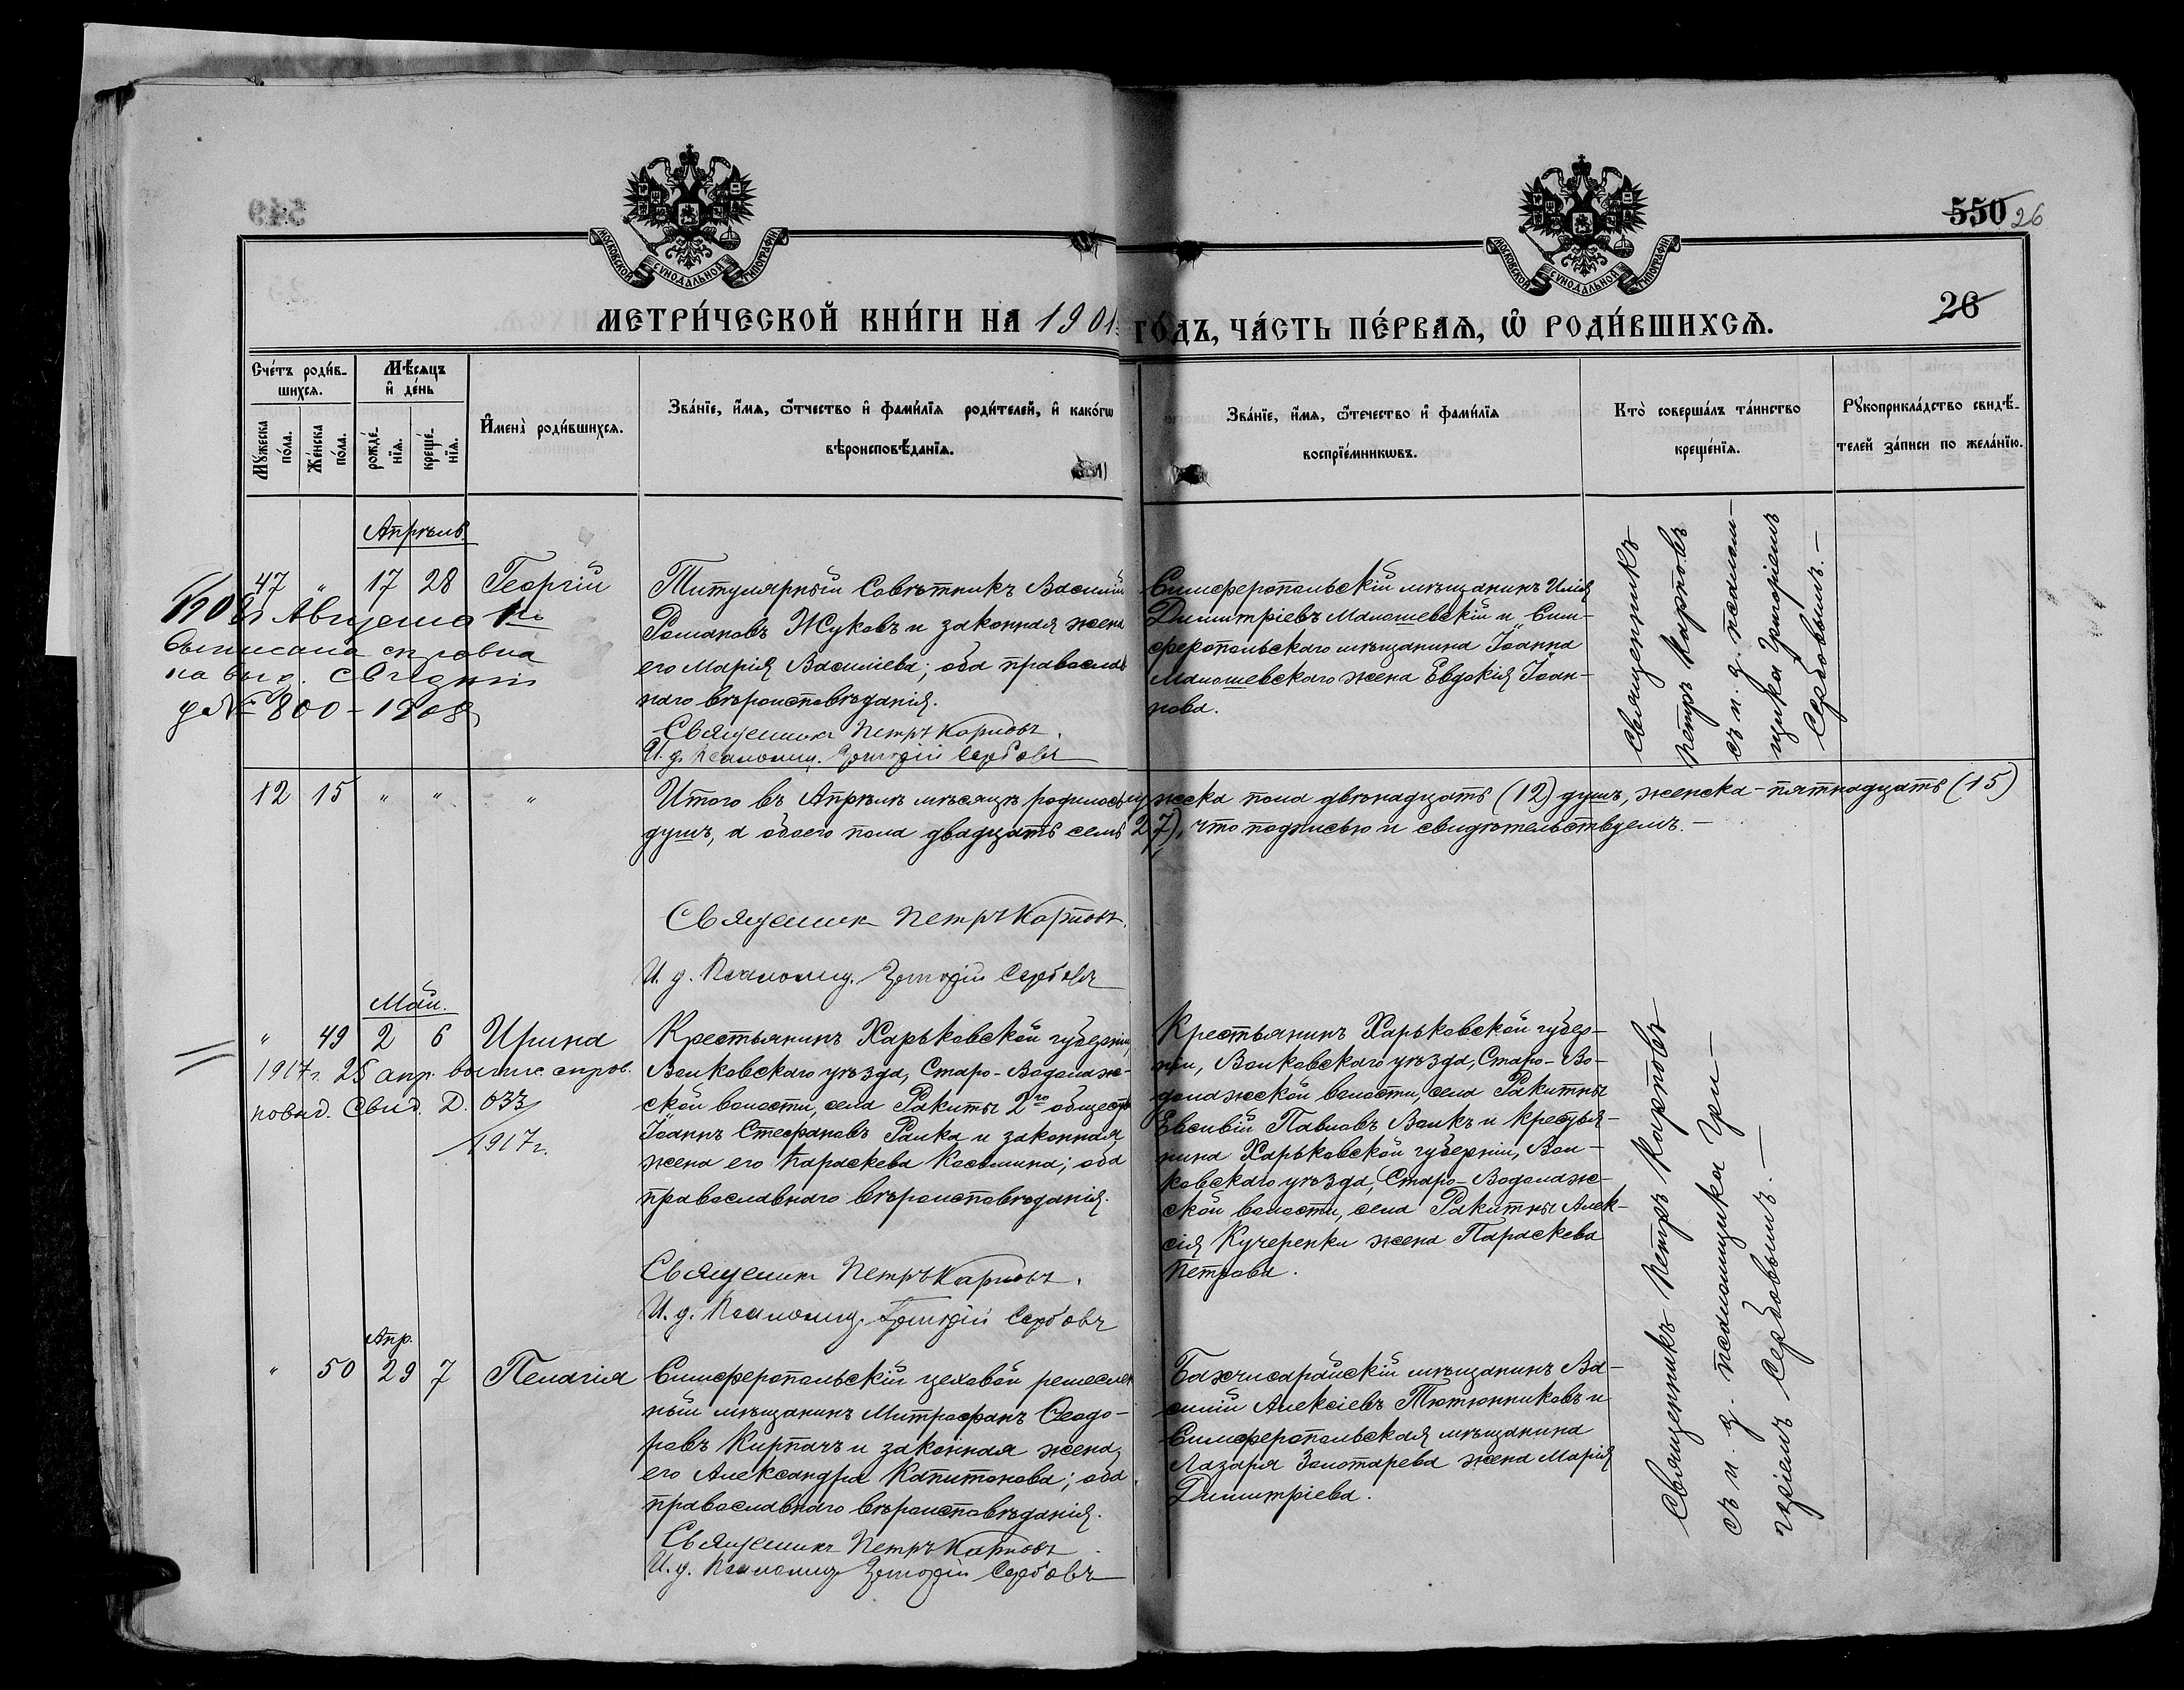 549
МОСКОВСКОЙ СѴНОДАЛЬНОЙ ТИПОГРАФІИ
МОСКОВСКОЙ СѴНОДАЛЬНОЙ ТИПОГРАФІИ
550 26
26
МЕТРИ́ЧЕСКОЙ КНИ́ГИ НА 1901
ГО́ДЪ, ЧА́СТЬ ПЕ́РВАѦ, Ѿ РОДИ́ВШИХСѦ.
Сче́тъ роди́в-
шихсѧ.
Мꙋ́жеска по́ла.
Же́нска по́ла.
Мѣ́сѧцъ
и҆ де́нь
рожде́-
нїѧ.
креще́-
нїѧ.
И҆мена̀ роди́вшихсѧ.
Зва́нїе, и҆́мѧ, ѻ҆́тчество и҆ фами́лїѧ роди́телей, и҆ како́гѡ
вѣроисповѣ́данїѧ.
Зва́нїе, и҆́мѧ, ѻ҆́течество и҆ фами́лїѧ
воспрїе́мникѡвъ.
Кто̀ соверша́лъ та́инство
креще́нїѧ.
Рꙋкоприкла́дство свидѣ́-
телей за́писи по жела́нїю.
Апрѣль.
47 " 17 28 Георгій
Августа 1го
выписана справка
на выд. свидѣт
№ 800 - 1908
Титулярный Совѣтникъ Василій
Романовъ Жуковъ и законная жена
его Марія Васильева; оба православ
наго вѣроисповѣданія.
Священникъ Петръ Карповъ.
И. д. Псаломщ. Григорій Сербовъ
Симферопольскій мѣщанинъ Илія
Димитріевъ Малошевскій и Сим-
феропольскаго мѣщанина Іоанна
Малошевскаго жена Евдокія Іоан-
нова.
Священникъ
Петръ Карповъ
съ и. д. псалом-
щика Григоріемъ
Сербовымъ.—
12 15 " " "
Итого въ Апрѣлѣ мѣсяцѣ родилось мужеска пола двѣнадцать (12) душъ, женска - пятнадцать (15)
душъ, а обоего пола двадцать семь 27), что подписью и свидѣтельствуемъ.—
Священникъ Петръ Карповъ.
И. д. Псаломщ. Григорій Сербовъ
Май.
" 49 2 6 Ирина
1917 г. 25 апр. выпис. справ.
по выд. Свид. Д. 033
1917 г.
Крестьянинъ Харьковской губерніи,
Волковскаго уѣзда, Старо-Водолаж-
ской волости, села Ракиты 2го обществ
Іоаннъ Стефановъ Ралка и законная
жена его Параскева Косьмина; оба
православнаго вѣроисповѣданія.
Священникъ Петръ Карповъ.
И. д. Псаломщ. Григорій Сербовъ
Крестьянинъ Харьковской губер-
ніи, Волковскаго уѣзда, Старо-Во-
долажской волости, села Ракитны
Евсивій Павловъ Волкъ и крестья-
нина Харьковской губерніи, Вол-
ковскаго уѣзда, Старо-Водолаж-
ской волости, села Ракитны Алек-
сія Кучеренки жена Параскева
Петрова.
Апр.
" 50 29 7 Пелагія
Симферопольскій цеховой ремеслен
ный мѣщанинъ Митрофанъ Ѳеодо-
ровъ Кирпачъ и законная жена
его Александра Капитонова; оба
православнаго вѣроисповѣданія.
Священникъ Петръ Карповъ
И. д. Псаломщ. Григорій Сербовъ
Бахчисарайскій мѣщанинъ Ва-
силій Алексіевъ Тютюнниковъ и
Симферопольская мѣщанина
Лазаря Золотарева жена Марія
Димитріева.
Священникъ Петръ Карповъ
съ и. д. псаломщика Гри-
горіемъ Сербовымъ.—